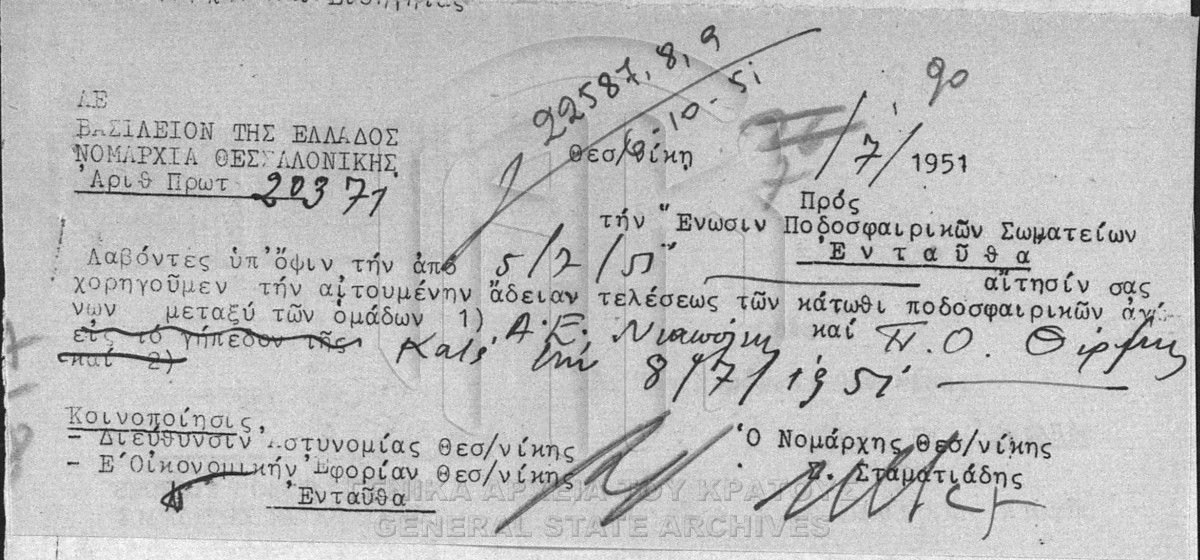 22587, 8, 9
6-10-51
90
ΛΕ
ΒΑΣΙΛΕΙΟΝ ΤΗΣ ΕΛΛΑΔΟΣ
ΝΟΜΑΡΧΙΑ ΘΕΣΣΑΛΟΝΙΚΗΣ
Ἀριθ Πρωτ 20371
Θεσ/νίκη / 7 / 1951
Πρός
τήν Ἕνωσιν Ποδοσφαιρικῶν Σωματείων
Ἐνταῦθα
Λαβόντες ὑπ'ὄψιν τήν ἀπό 5/7/51 αἴτησίν σας
χορηγοῦμεν τήν αἰτουμένην ἄδειαν τελέσεως τῶν κάτωθι ποδοσφαιρικῶν ἀγώ-
νων μεταξύ τῶν ὁμάδων 1) Α.Ε. καί Π.Ο. Θέρμης
εἰς τό γήπεδον τῆς Κατά τήν 8/7/1951
καί 2)
Κοινοποίησις,
- Διεύθυνσιν Ἀστυνομίας Θεσ/νίκης
- Ε'Οἰκονομικήν Ἐφορίαν Θεσ/νίκης
Ἐνταῦθα
Ὁ Νομάρχης Θεσ/νίκης
Σ. Σταματιάδης
ΓΕΝΙΚΑ ΑΡΧΕΙΑ ΤΟΥ ΚΡΑΤΟΥΣ
GENERAL STATE ARCHIVES